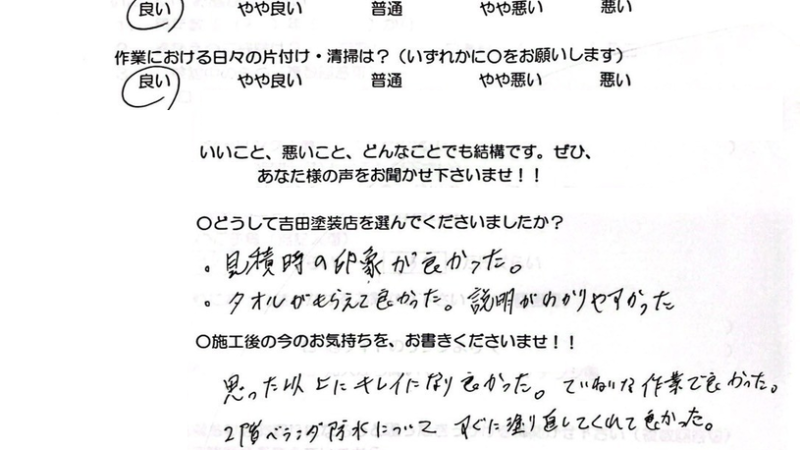 良い やや良い 普通 やや悪い 悪い
作業における日々の片付け・清掃は？（いずれかに〇をお願いします）
良い やや良い 普通 やや悪い 悪い
いいこと、悪いこと、どんなことでも結構です。ぜひ、
あなた様の声をお聞かせ下さいませ！！
〇どうして吉田塗装店を選んでくださいましたか？
・見積時の印象が良かった。
・タオルがもらえて良かった。説明がわかりやすかった
〇施工後の今のお気持ちを、お書きくださいませ！！
思った以上にキレイになり良かった。ていねいな作業で良かった。
2階ベランダ防水について すぐに塗り直してくれて良かった。